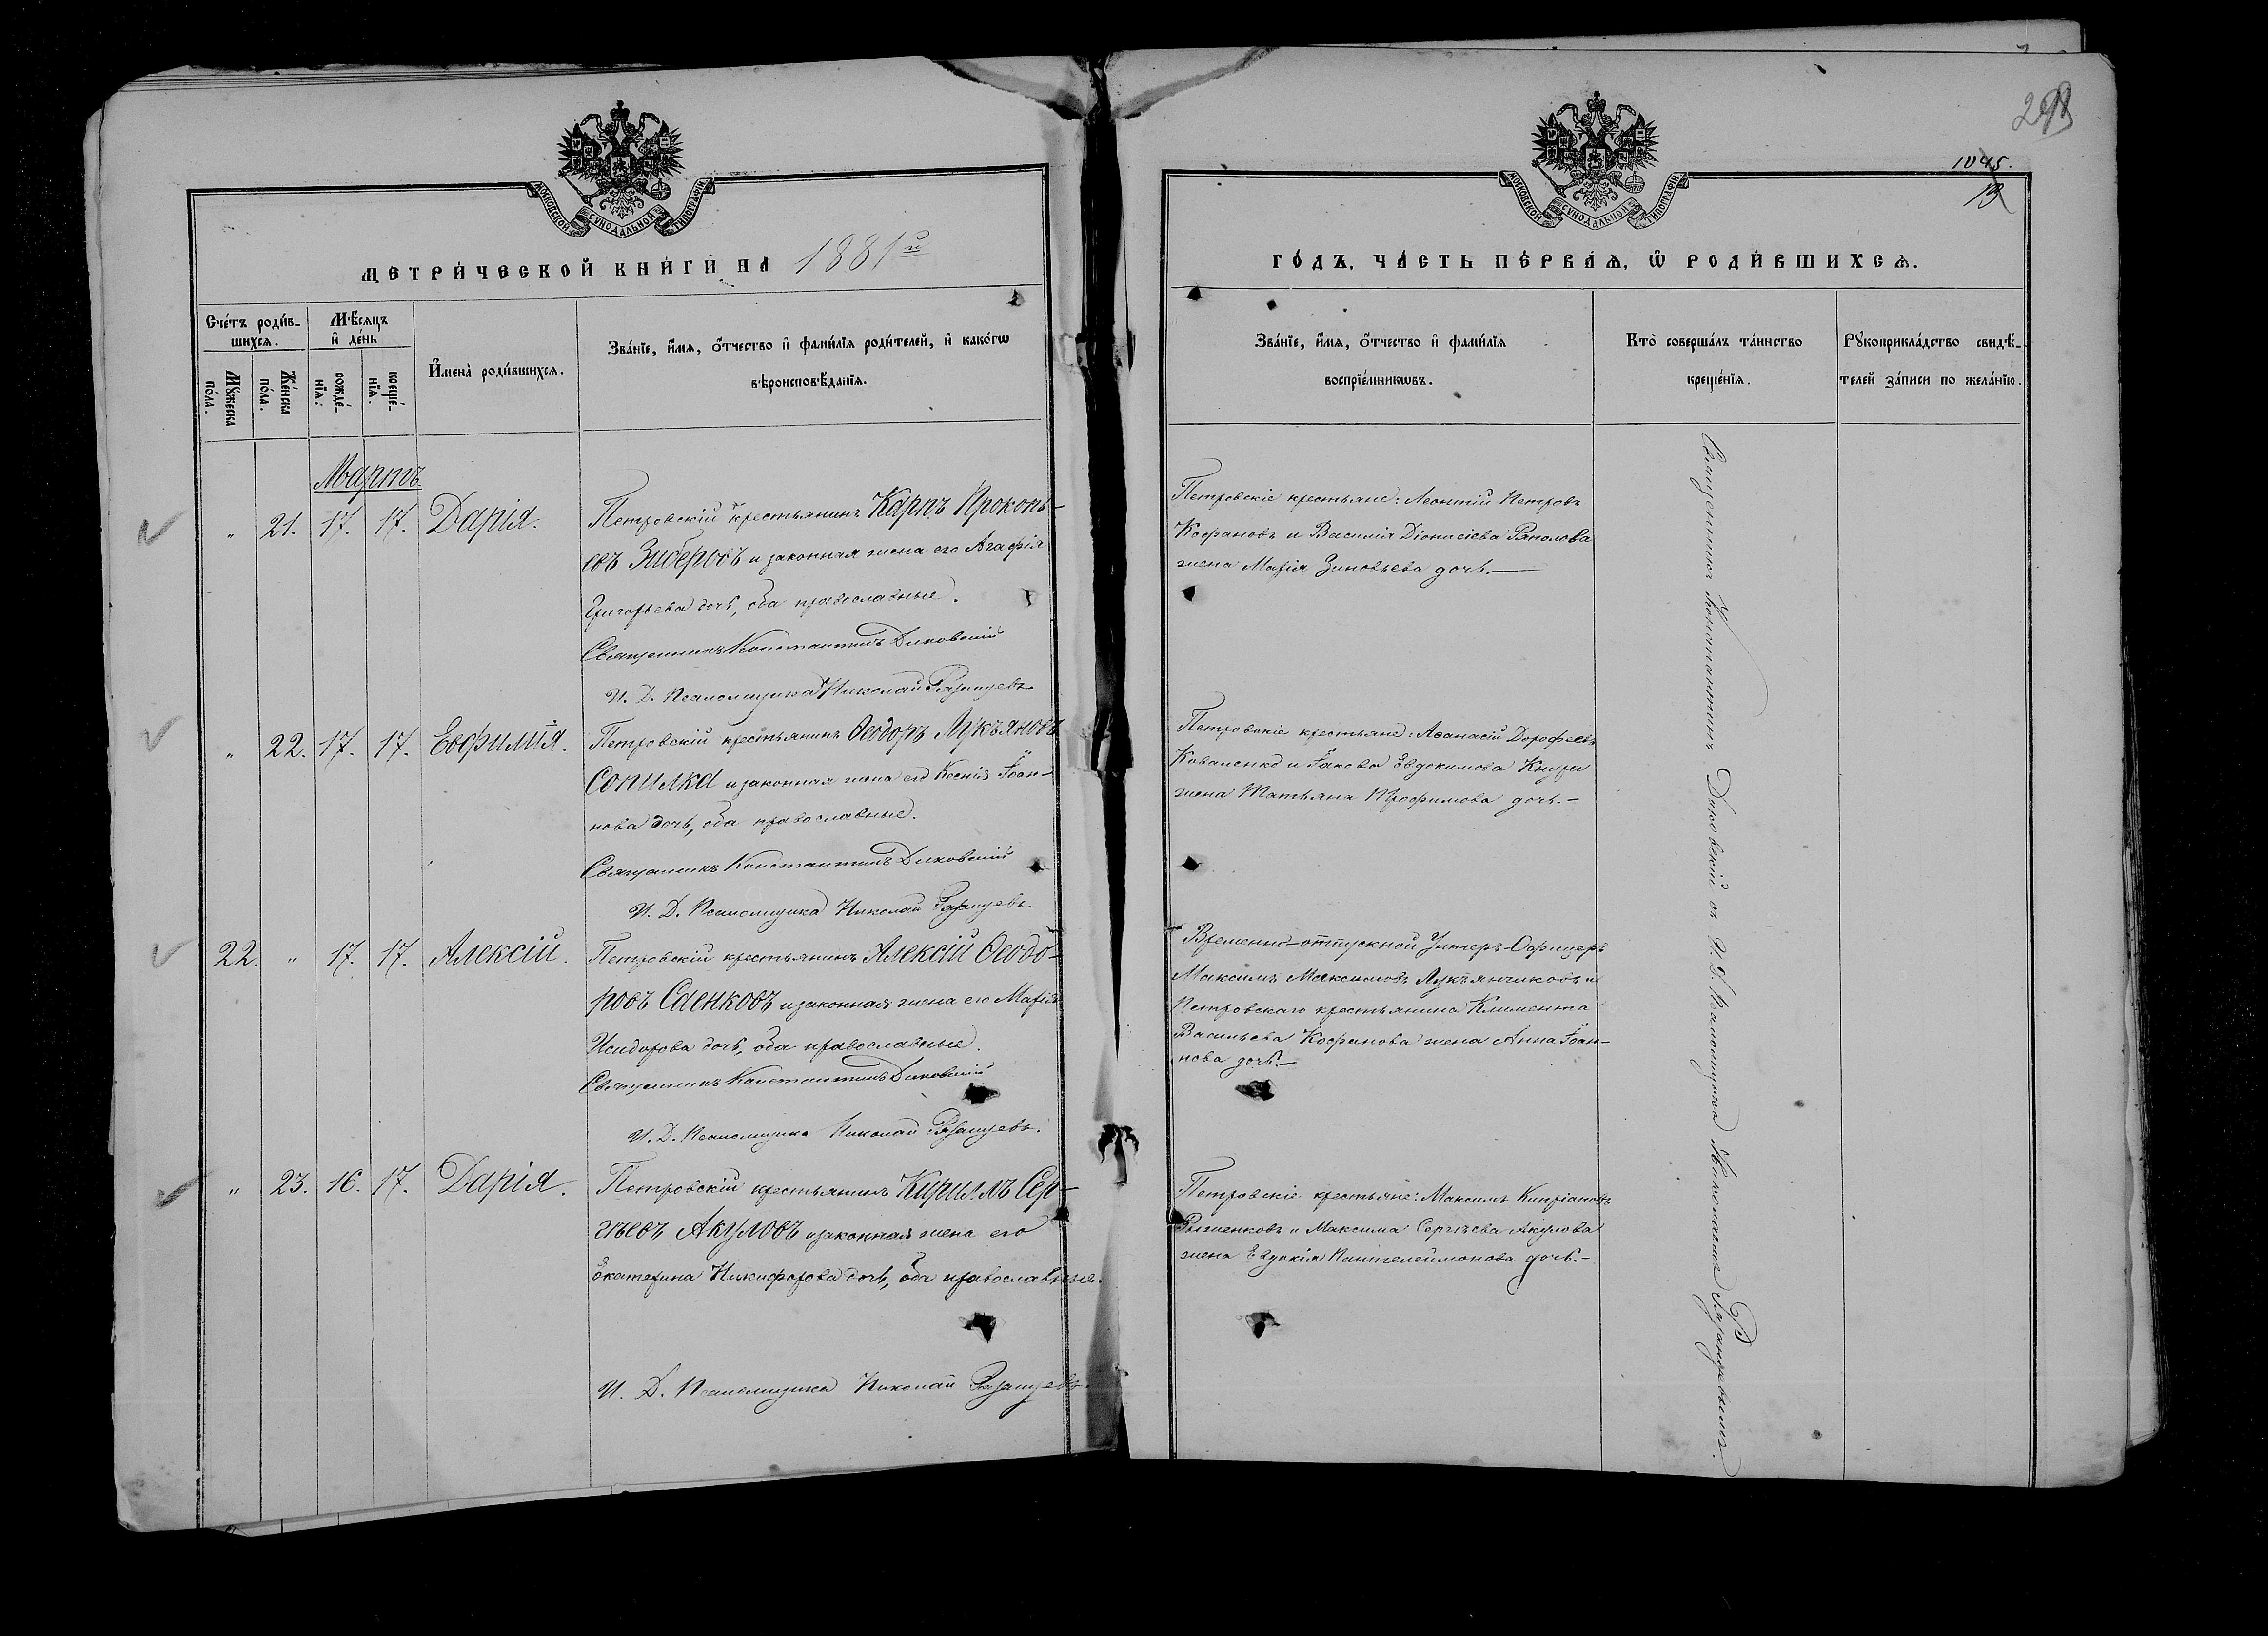 293
1045.
13
МОСКОВСКОЙ СѴНОДАЛЬНОЙ ТИПОГРАФІИ
МОСКОВСКОЙ СѴНОДАЛЬНОЙ ТИПОГРАФІИ
МЕТРИ́ЧЕСКОЙ КНИ́ГИ НА 1881й
ГО́ДЪ, ЧА́СТЬ ПЕ́РВАѦ, Ѡ҆ РОДИ́ВШИХСѦ.
Сче́тъ роди́в-
шихсѧ.
Мꙋ́жеска по́ла.
Же́нска по́ла.
Мѣ́сѧцъ и҆ де́нь
рожде́-нїѧ.
креще́-нїѧ.
И҆мена̀ роди́вшихсѧ.
Зва́нїе, и҆́мѧ, ѻ҆́тчество и҆ фами́лїѧ роди́телей, и҆ како́гѡ
вѣроисповѣ́данїѧ.
Зва́нїе, и҆́мѧ, ѻ҆́тчество и҆ фами́лїѧ
воспрїе́мникѡвъ.
Кто̀ соверша́лъ та́инство
креще́нїѧ.
Рꙋкоприкла́дство свидѣ́-
телей за́писи по жела́нїю.
Мартъ
" 21. 17. 17. Дарія.
Петровскій крестьянинъ Карпъ Прокопь-
евъ Зиберовъ и законная жена его Агафія
Григорьева дочь, оба православные.
Священникъ Константинъ Диковскій
И. Д. Псаломщика Николай Рязанцевъ
Петровскіе крестьяне: Леонтій Петровъ
Кофановъ и Василія Діонисіева
жена Марія Зиновьева дочь.—
" 22. 17. 17. Евфимія.
Петровскій крестьянинъ Ѳеодоръ Лукьяновъ
Сопилка и законная жена его Ксенія Іоан-
нова дочь, оба православные.
Священникъ Константинъ Диковскій
И. Д. Псаломщика Николай Рязанцевъ.
Петровскіе крестьяне: Аѳанасій Дорофеевъ
Коваленко и Іакова Евдокимова
жена Татьяна Трофимова дочь.—
22. " 17. 17. Алексій.
Петровскій крестьянинъ Алексій Ѳеодо-
ровъ Саенковъ и законная жена его Марія
Исидорова дочь, оба православные.
Священникъ Константинъ Диковскій
И. Д. Псаломщика Николай Рязанцевъ.
Временно-отпускной Унтеръ-Офицеръ
Максимъ Максимовъ Лукьянчиковъ и
Петровскаго крестьянина Климента
Васильева Кофанова жена Анна Іоан-
нова дочь.—
" 23. 16. 17. Дарія.
Петровскій крестьянинъ Кириллъ Сер-
гѣевъ Акуловъ и законная жена его
Екатерина Никифорова дочь, оба православные.
И. Д. Псаломщика Николай Рязанцевъ
Петровскіе крестьяне: Максимъ Кипріановъ
и Максима Сергѣева Акулова
жена Евдокія Пантелеймонова дочь.—
Священникъ Константинъ Диковскій съ И. Д. Псаломщика Николаемъ Рязанцевымъ.